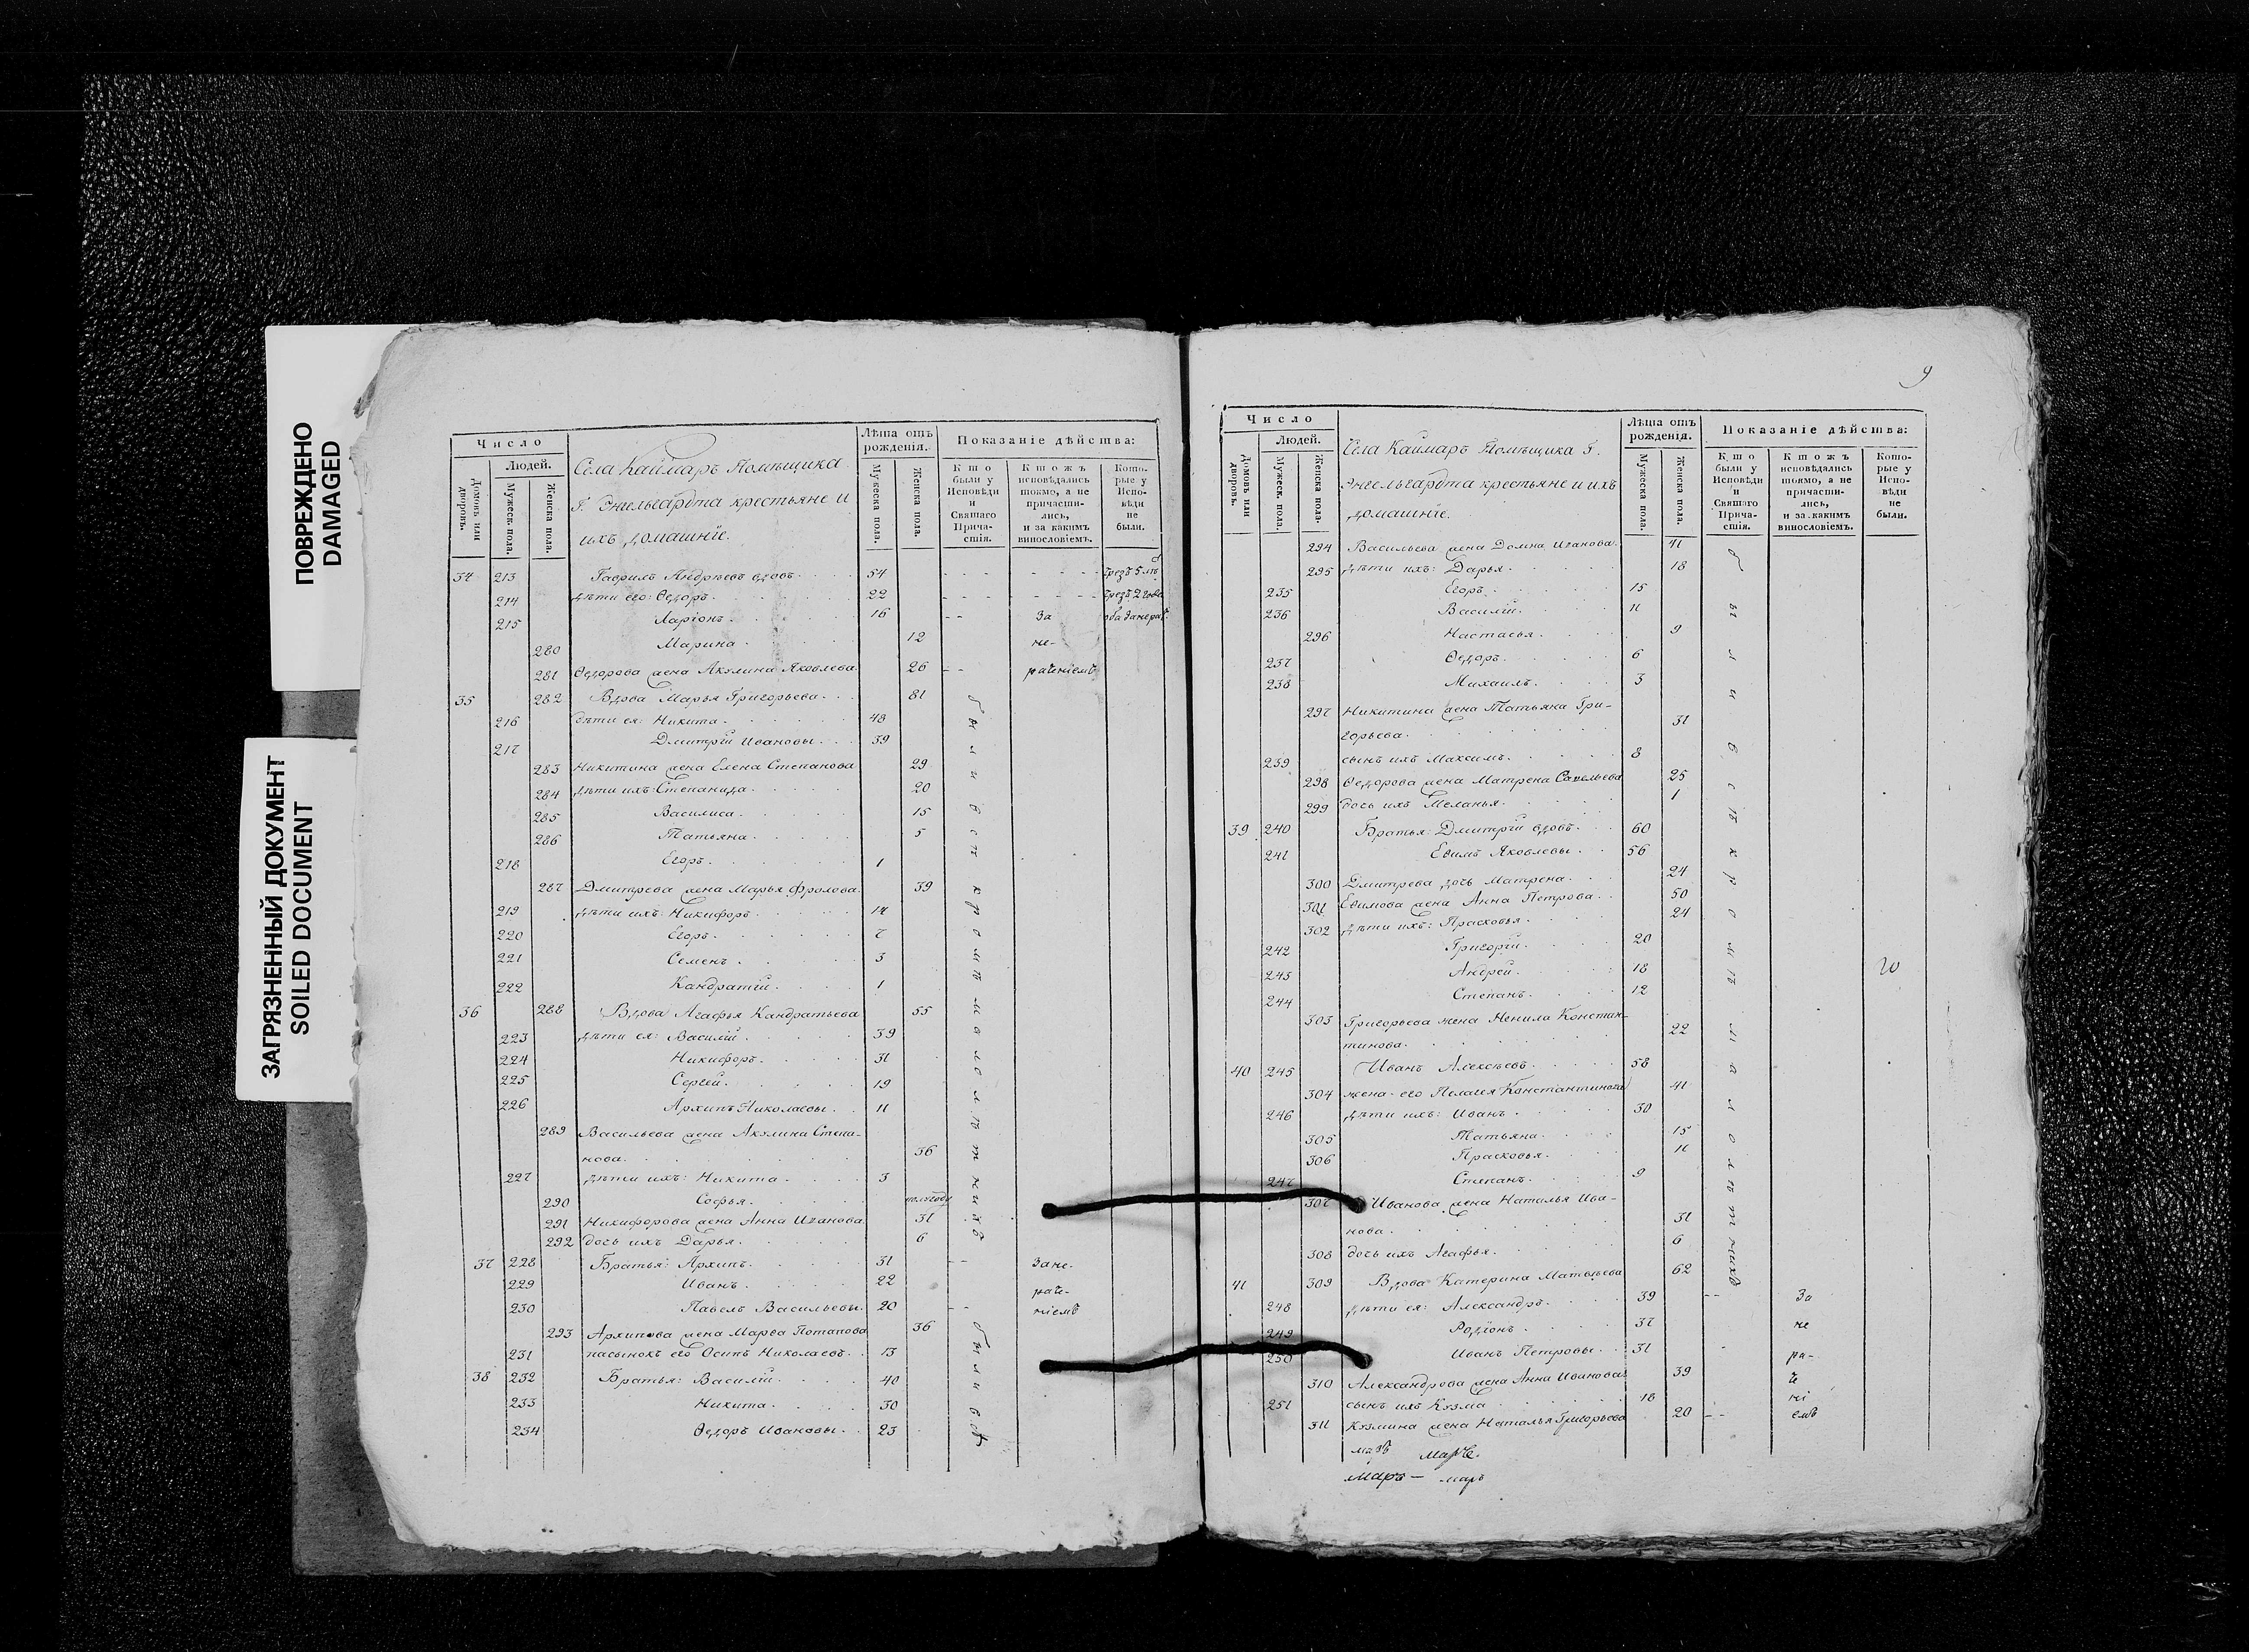 ПОВРЕЖДЕНО
DAMAGED
ЗАГРЯЗНЕННЫЙ ДОКУМЕНТ
SOILED DOCUMENT
Число
Людей.
Домовъ или дворовъ.
Мужеск. пола.
Женска пола.
Села Каймаръ Помѣщика
Г. Энгельгардта крестьяне и
ихъ домашнїе.
Лѣта отъ рожденія.
Мужеска пола.
Женска пола.
Показаніе дѣйства:
Кто были у Исповѣди и Святаго Причастія.
Ктожъ исповѣдались токмо, а не причастились, и за какимъ винословіемъ.
Которые у Исповѣди не были.
34 213 Гаврилъ Андреевъ вдовъ 54
214 дѣти его: Ѳедоръ 22
215 Ларіонъ 16 За
280 Марина 12 не-
281 Ѳедорова жена Акулина Яковлева 26 раченіемъ
35 282 Вдова Марья Григорьева 81
216 дѣти ея: Никита 48
217 Дмитрїй Ивановы 39
283 Никитина жена Елена Степанова 29
284 дѣти ихъ: Степанида 20
285 Василиса 15
286 Татьяна 5
218 Егоръ 1
287 Дмитрева жена Марья Фролова 39
219 дѣти ихъ: Никифоръ 14
220 Егоръ 7
221 Семенъ 3
222 Кандратїй 1
36 288 Вдова Агафья Кандратьева 55
223 дѣти ея: Василїй 39
224 Никифоръ 31
225 Сергей 19
226 Архипъ Николаевы 11
289 Васильева жена Акулина Степа-
нова 36
227 дѣти ихъ: Никита 3
290 Софья полугода
291 Никифорова жена Анна Иванова 31
292 дочь ихъ Дарья 6
37 228 Братья: Архипъ 31 Зане-
229 Иванъ 22 раче-
230 Павелъ Васильевы 20 ніемъ
293 Архипова жена Марѳа Потапова 36
231 пасынокъ его Осипъ Николаевъ 13
38 232 Братья: Василїй 40
233 Никита 30
234 Ѳедоръ Ивановы 23
были всѣ кромѣ малолѣтнихъ
были всѣ
9
Число
Людей.
Домовъ или дворовъ.
Мужеск. пола.
Женска пола.
Села Каймаръ Помѣщика Г.
Энгельгардта крестьяне и ихъ
домашнїе.
Лѣта отъ рожденія.
Мужеска пола.
Женска пола.
Показаніе дѣйства:
Кто были у Исповѣди и Святаго Причастія.
Ктожъ исповѣдались токмо, а не причастились, и за какимъ винословіемъ.
Которые у Исповѣди не были.
294 Васильева жена Домна Иванова 41
295 дѣти ихъ: Дарья 18
235 Егоръ 15
236 Василїй 11
296 Настасья 9
237 Ѳедоръ 6
238 Михаилъ 3
297 Никитина жена Татьяна Гри-
горьева 31
239 сынъ ихъ Максимъ 8
298 Ѳедорова жена Матрена Савельева 25
299 дочь ихъ Меланья 1
39 240 Братья: Дмитрїй вдовъ 60
241 Евимъ Яковлевы 56
300 Дмитрева дочь Матрена 24
301 Евимова жена Анна Петрова 50
302 дѣти ихъ: Прасковья 24
242 Григорїй 20
243 Андрей 18
244 Степанъ 12
303 Григорьева жена Ненила Констан-
тинова 22
40 245 Иванъ Алексѣевъ 58
304 жена его Пелагея Константинова 41
246 дѣти ихъ: Иванъ 30
305 Татьяна 15
306 Прасковья 11
247 Степанъ 9
307 Иванова жена Наталья Ива-
нова 31
308 дочь ихъ Агафья 6
41 309 Вдова Катерина Матвѣева 62
248 дѣти ея: Александръ 39 За
249 Родїонъ 37 не
250 Иванъ Петровы 31 ра-
310 Александрова жена Анна Иванова 39 че
251 сынъ ихъ Кузма 18 ні
311 Кузмина жена Наталья Григорьева 20 емъ
были всѣ кромѣ малолѣтнихъ
маръ